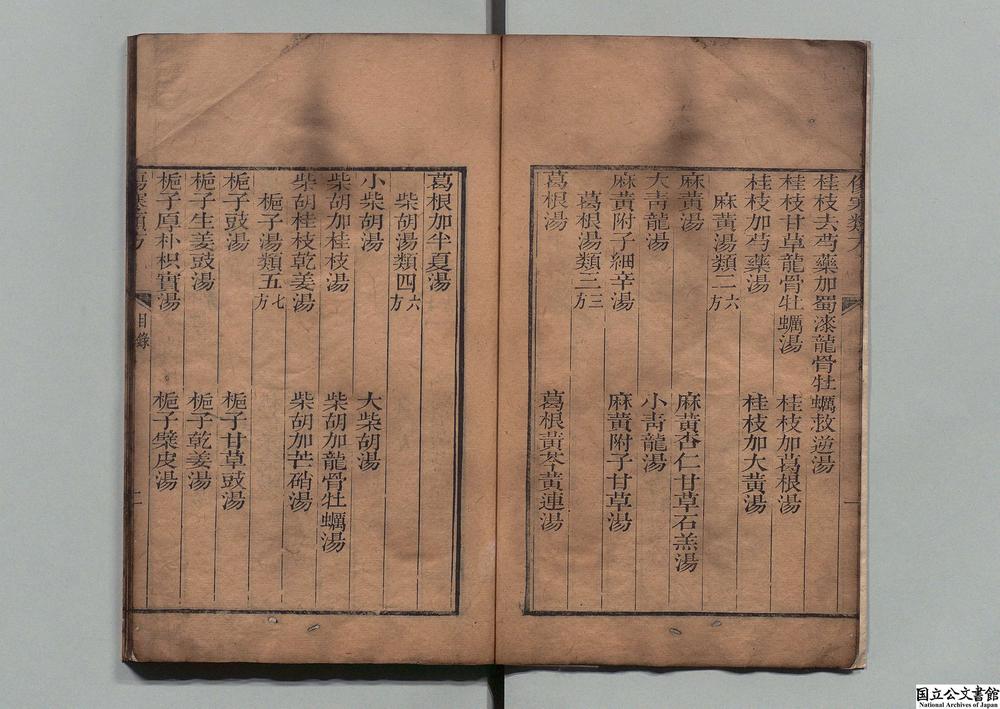 桂枝去芍藥加蜀漆龍骨牡蠣救逆湯
桂枝甘草龍骨牡蠣湯　桂枝加葛根湯
桂枝加芍藥湯　桂枝加大黃湯
麻黃湯類二 六方
麻黃湯　麻黃杏仁甘草石羔湯
大青龍湯　小青龍湯
麻黃附子細辛湯　麻黃附子甘草湯
葛根湯類三 三方
葛根湯　葛根黃芩黃連湯
葛根加半夏湯
柴胡湯類四 六方
小柴胡湯　大柴胡湯
柴胡加桂枝湯　柴胡加龍骨牡蠣湯
柴胡桂枝乾姜湯　柴胡加芒硝湯
梔子湯類五 七方
梔子豉湯　梔子甘草豉湯
梔子生姜豉湯　梔子乾姜湯
梔子厚朴枳實湯　梔子檗皮湯
傷寒類方　目錄　二
国立公文書館
National Archives of Japan